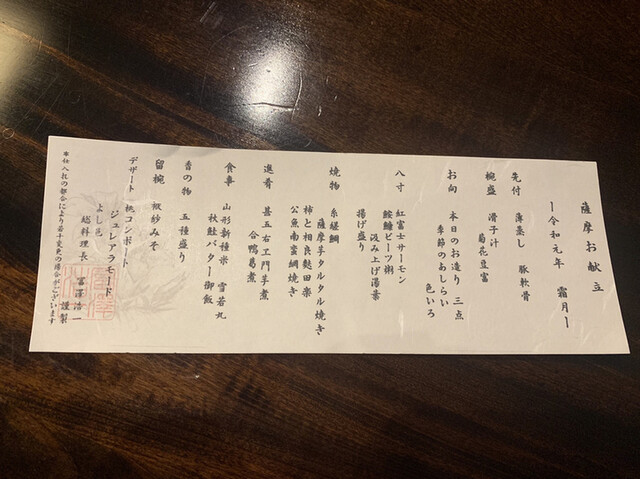 薩摩お献立
ー令和元年 霜月ー
先付 薄蒸し 豚軟骨
椀盛 滑子汁
菊花豆富
お向 本日のお造り 三点
季節のあしらい 色いろ
八寸 紅富士サーモン
鮟鱇ビーツ粥
汲み上げ湯葉
揚げ盛り
焼物 糸縒鯛
薩摩芋タルタル焼き
柿と相良麩田楽
公魚南蛮鯛焼き
進肴 甚五右エ門芋煮
合鴨葛煮
食事 山形新種米 雪若丸
秋鮭バター御飯
香の物 五種盛り
留椀 袱紗みそ
デザート 桃コンポート
ジュレアラモード
よし邑
総料理長 冨澤浩一
謹製
※仕入れの都合により若干変更の場合がございます